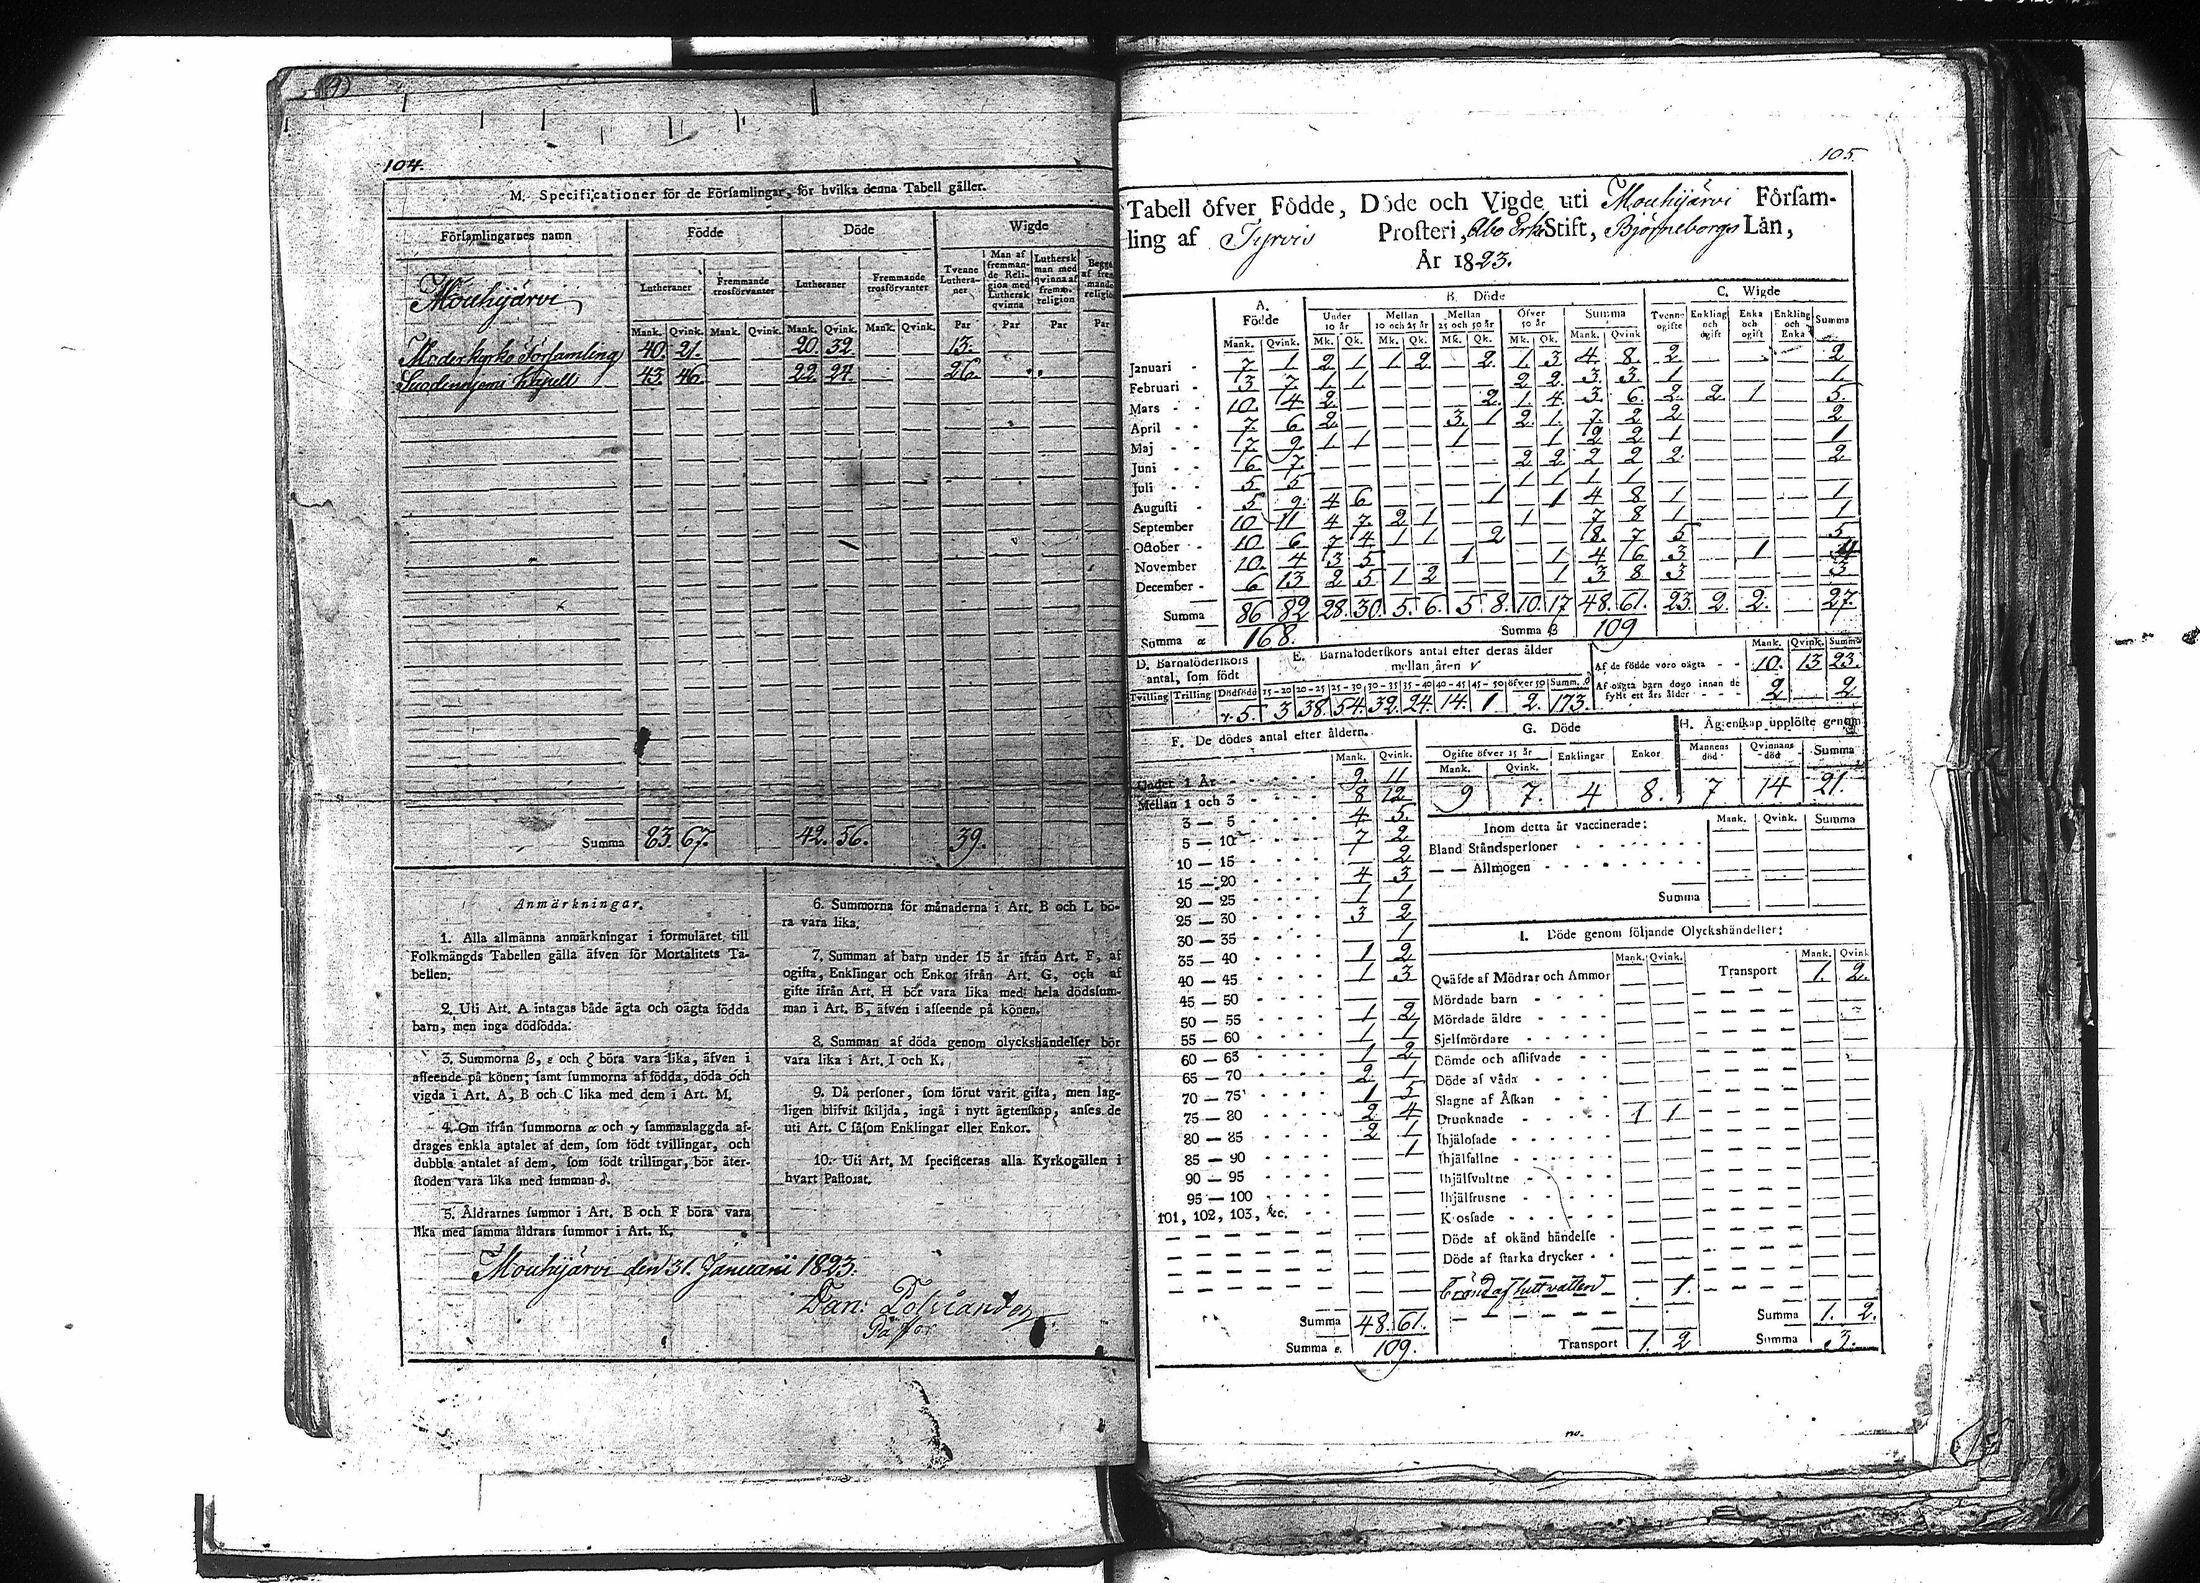 104.
M. Specificationer för de Församlingar, för hvilka denna Tabell gäller.
Församlingarnes namn Födde Döde Wigde
Lutheraner Fremmande trosförvanter Lutheraner Fremmande trosförvanter Tvenne Lutheraner Man af fremmande Religion med Luthersk qvinna Luthersk man med qvinna af fremm. religion Begge af fremmande religion
Mank. Qvink. Mank. Qvink. Mank. Qvink. Mank. Qvink. Par Par Par Par
Mouhijärvi
Moderkyrko Församling 40. 21. 20. 32. 13.
Suodenniemi Capell 43. 46. 22. 24. 26.
Summa 83. 67. 42. 56. 39.
Anmärkningar.
1. Alla allmänna anmärkningar i formuläret till
Folkmängds Tabellen gälla äfven för Mortalitets Ta-
bellen.
2. Uti Art. A intagas både ägta och oägta födda
barn, men inga dödfödda.
3. Summorna β, ε och ζ böra vara lika, äfven i
afseende på könen; samt summorna af födda, döda och
vigda i Art. A, B och C lika med dem i Art. M.
4. Om ifrån summorna α och γ sammanlaggda af-
drages enkla antalet af dem, som födt tvillingar, och
dubbla antalet af dem, som födt trillingar, bör åter-
stoden vara lika med summan δ.
5. Åldrarnes summor i Art. B och F böra vara
lika med samma åldrars summor i Art. K.
6. Summorna för månaderna i Art. B och L bö-
ra vara lika.
7. Summan af barn under 15 år ifrån Art. F, af
ogifta, Enklingar och Enkor ifrån Art. G, och af
gifte ifrån Art. H bör vara lika med hela dödssum-
man i Art. B, äfven i afseende på könen.
8. Summan af döda genom olyckshändelser bör
vara lika i Art. I och K.
9. Då personer, som förut varit gifta, men lag-
ligen blifvit skiljda, ingå i nytt ägtenskap, anses de
uti Art. C såsom Enklingar eller Enkor.
10. Uti Art. M specificeras alla Kyrkogällen i
hvart Pastorat.
Mouhijärvi den 31. Januarii 1823.
Dan: Polviander
Pastor
105.
Tabell öfver Födde, Döde och Vigde uti Mouhijärvi Församling
ling af Tyrvis Prosteri, Åbo Erke Stift, Björneborgs Län,
År 1823.
A. Födde B. Döde C. Wigde
Under 10 år Mellan 10 och 25 år Mellan 25 och 50 år Öfver 50 år Summa Tvenne ogifte Enkling och ogift Enka och ogift Enkling och Enka Summa
Mank. Qvink. Mk. Qk. Mk. Qk. Mk. Qk. Mk. Qk. Mank. Qvink
Januari 7. 1. 2 1 1 2 — 2. 1. 3 4. 8. 2. — — — 2
Februari 3 7. 1 1 — — — — 2 2. 3. 3. 1 — — — 1.
Mars 10. 4 2. — — — — 2. 1. 4. 3. 6. 2. 2. 1 — 5.
April 7. 6 2. — — — 3. 1 2. 1. 7. 2 2 — — — 2
Maj 7. 9. 1 1 — — 1 — — 1 2 2 1 — — — 1
Juni 6. 7. — — — — — — 2 2. 2 2 2. — — — 2
Juli 5 5 — — — — — — 1 1 1 1 — — — — —
Augusti 5 9. 4 6 — — — 1 — 1 4 8 1 — — — 1
September 10. 11 4 7. 2 1 — — 1 — 7 8 1 — — — 1
October 10. 6 7 4 1 1 — 2 — — 8. 7 5 — — — 5
November 10. 4 3 5 — — 1 — — 1 4 6 3 — 1 — 4
December 6 13 2 5 1 2 — — — 1 3 8 3 — — — 3
Summa 86 82 28. 30. 5. 6. 5 8. 10. 17 48. 61. 23. 2. 2. — 27.
Summa α 168. Summa β 109
D. Barnaföderskors antal, som födt
Tvilling Trilling Dödfödt
γ. 5.
E. Barnaföderskors antal efter deras ålder mellan åren
15-20 20-25 25-30 30-35 35-40 40-45 45-50 öfver 50 Summ. δ
3 38. 54. 32. 24. 14. 1 2. 173.
Mank. Qvink. Summa
Af de födde voro oägta 10. 13 23.
Af oägta barn dogo innan de fyllt ett års ålder 2 2
F. De dödes antal efter åldern.
Mank. Qvink.
Under 1 År 9. 11
Mellan 1 och 3 8 12
3 — 5 4 5.
5 — 10 7 2
10 — 15 — 2
15 — 20 4 3
20 — 25 1 1
25 — 30 3 2
30 — 35 — 1
35 — 40 1 2
40 — 45 1 3
45 — 50 — —
50 — 55 1 2
55 — 60 1 1
60 — 65 1 2
65 — 70 2 1
70 — 75 1 5
75 — 80 2 4
80 — 85 2 1
85 — 90 — 1
90 — 95 — —
95 — 100 — —
101, 102, 103, &c.
Summa 48. 61.
Summa ε. 109.
G. Döde
Ogifte öfver 15 år Enklingar Enkor
Mank. Qvink.
9 7. 4 8.
H. Ägtenskap upplöste genom
Mannens död Qvinnans död Summa
7 14 21.
Inom detta år vaccinerade: Mank. Qvink. Summa
Bland Ståndspersoner
— — Allmogen
Summa
I. Döde genom följande Olyckshändelser:
Mank. Qvink. Mank. Qvink
Qväfde af Mödrar och Ammor Transport 1. 2.
Mördade barn
Mördade äldre
Sjelfmördare
Dömde och aflifvade
Döde af våda
Slagne af Åskan
Drunknade 1 1
Ihjälosade
Ihjälfallne
Ihjälsvultne
Ihjälfrusne
Krossade
Döde af okänd händelse
Döde af starka drycker
1.
Transport 1. 2
Summa 1. 2.
Summa 3.